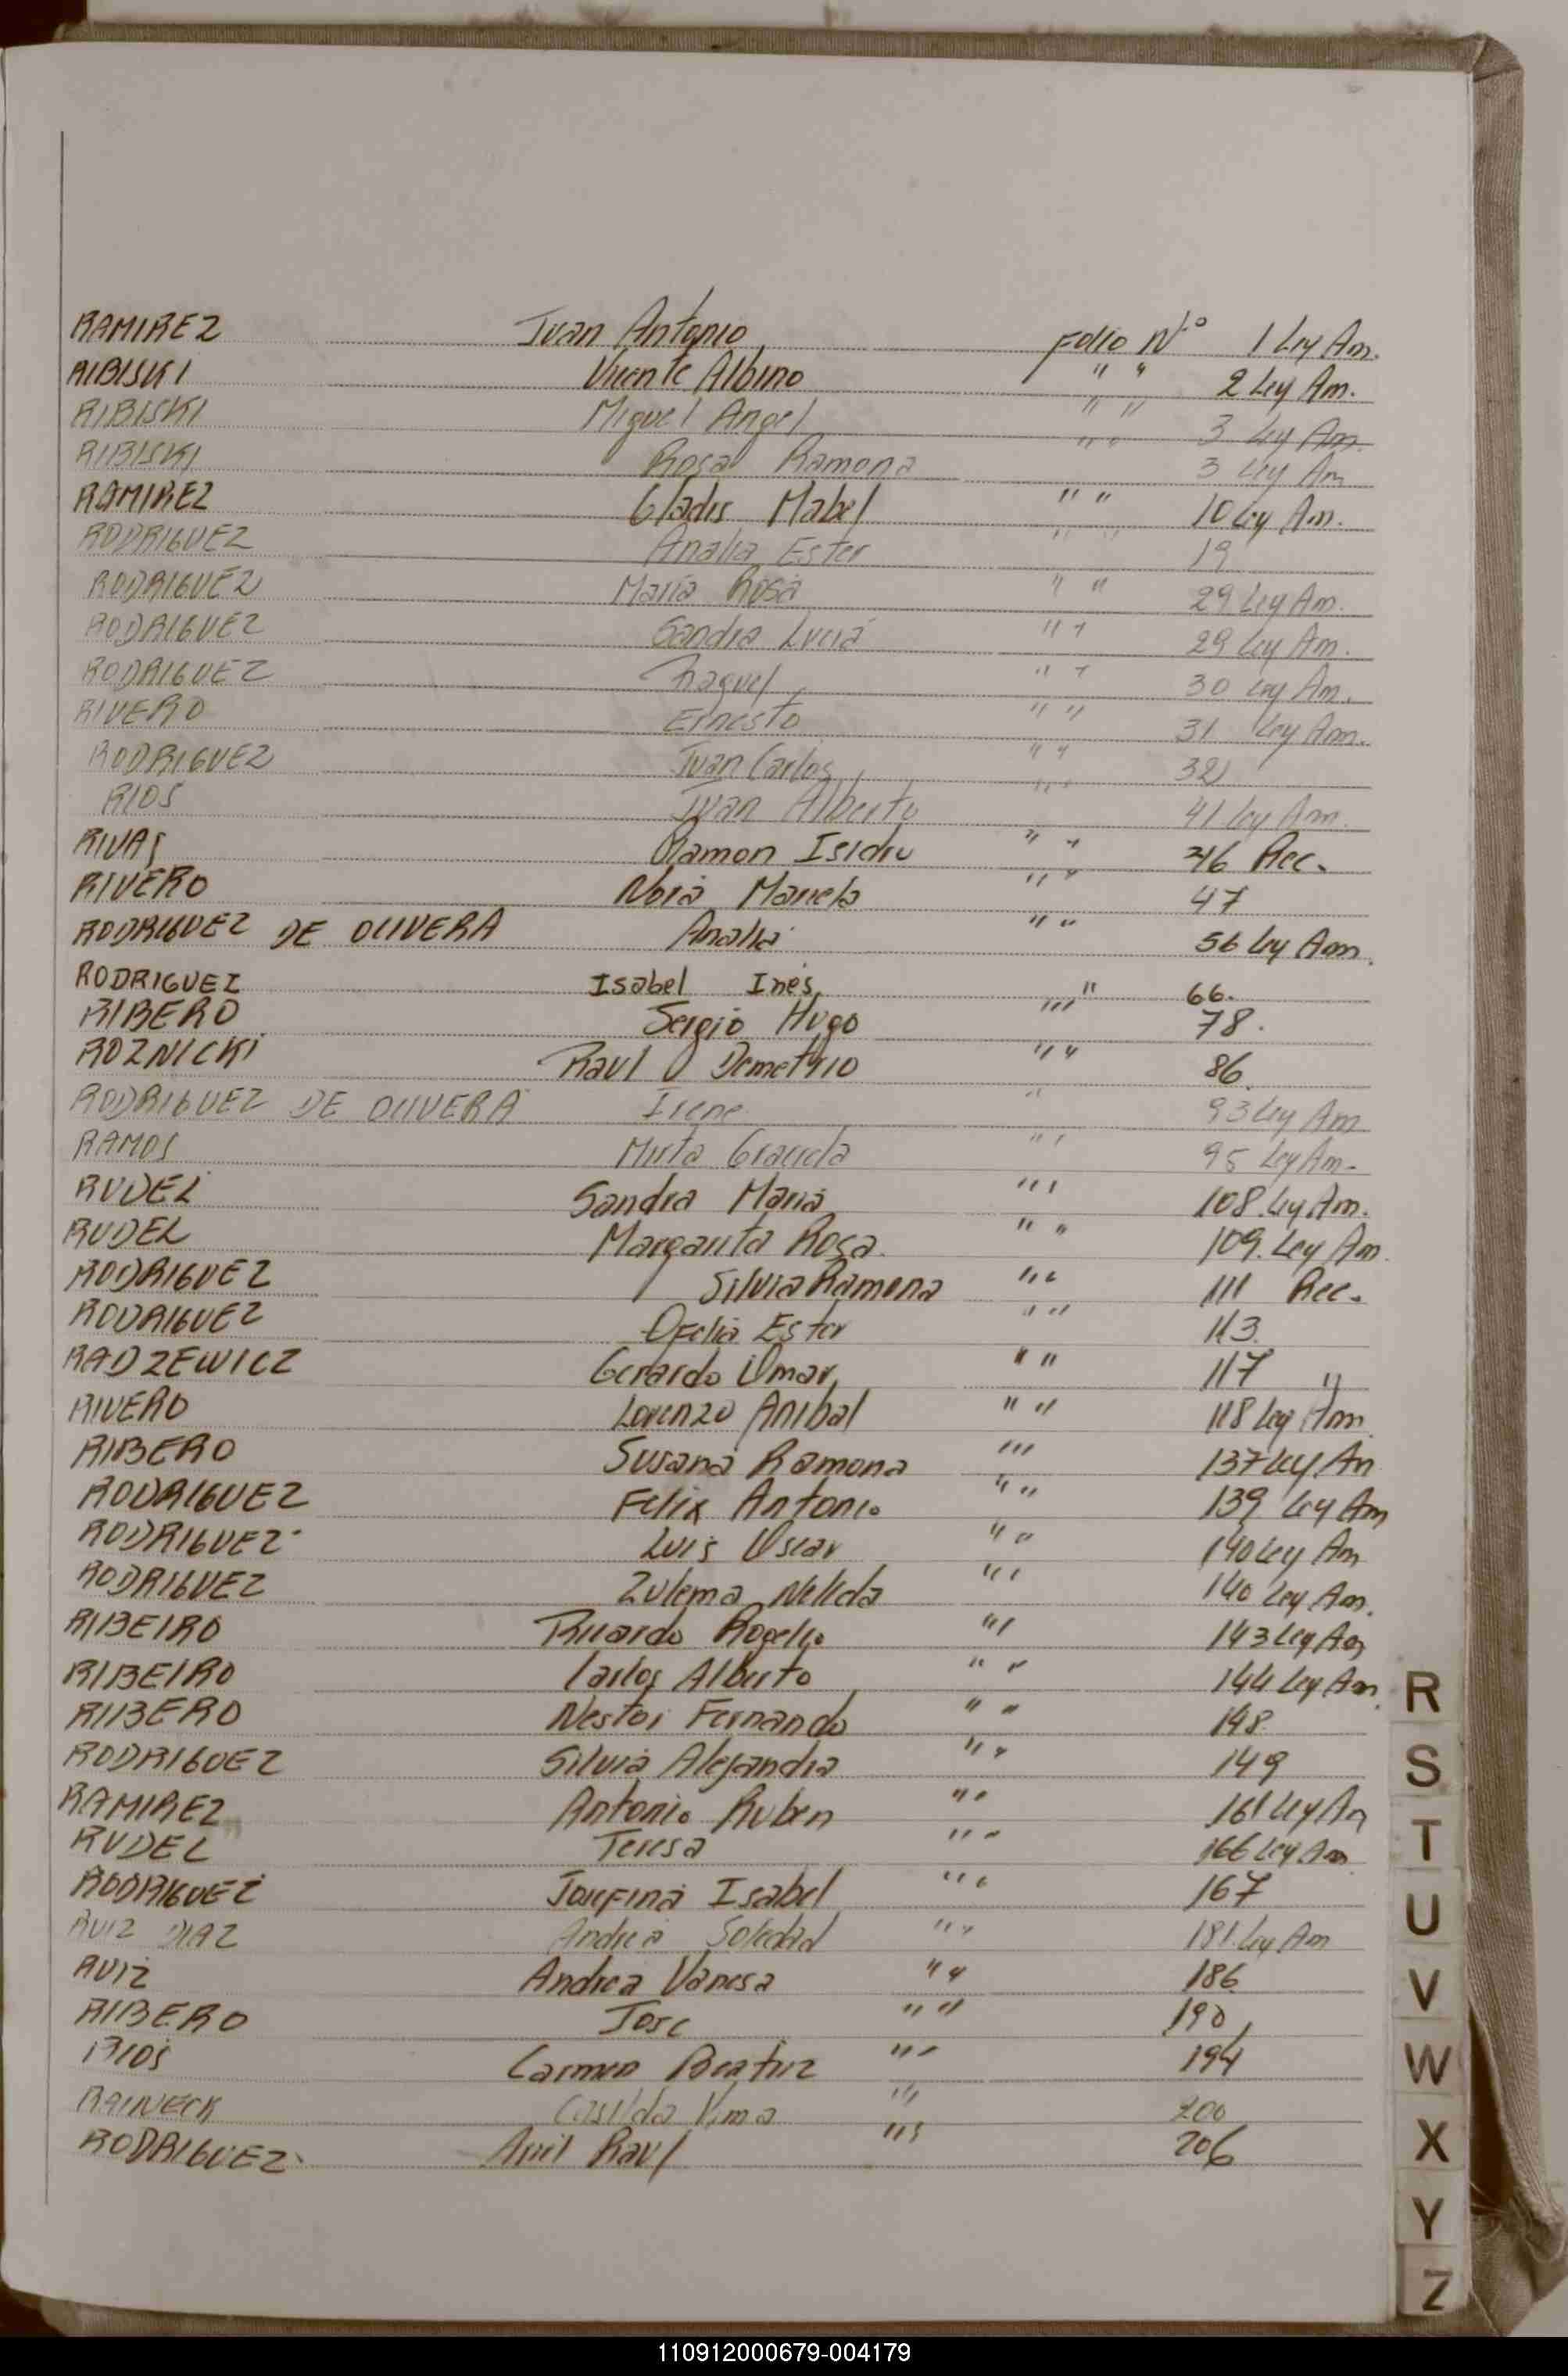 RAMIREZ Juan Antonio Folio Nº 1 Ley Am.
RIBISKI Vicente Albino " " 2 Ley Am.
RIBISKI Miguel Angel " " 3 Ley Am.
RIBISKI Rosa Ramona " " 3 Ley Am
RAMIREZ Gladis Mabel " " 10 Ley Am.
RODRIGUEZ Analia Ester " " 19
RODRIGUEZ Maria Rosa " " 29 Ley Am.
RODRIGUEZ Sandra Lucia " " 29 Ley Am.
RODRIGUEZ Raquel " " 30 Ley Am.
RIVERO Ernesto " " 31 Ley Am.
RODRIGUEZ Juan Carlos " " 32
RIOS Juan Alberto " " 41 Ley Am.
RIVAS Ramon Isidro " " 46 Rec.
RIVERO Nora Mariela " " 47
RODRIGUEZ DE OLIVERA Analia " " 56 Ley Am.
RODRIGUEZ Isabel Inés " 66.
RIBERO Sergio Hugo " " 78.
ROZNICKI Raul Demetrio " " 86.
RODRIGUEZ DE OLIVERA Irene " 93 Ley Am
RAMOS Mirta Graciela " " 95 Ley Am.
RUDEL Sandra Maria " " 108 Ley Am.
RUDEL Margarita Rosa " " 109. Ley Am.
RODRIGUEZ Silvia Ramona " " 111 Rec.
RODRIGUEZ Ofelia Ester " " 113
RADZEWICZ Gerardo Omar " " 117 "
RIVERO Lorenzo Anibal " " 118 Ley Am
RIBERO Susana Ramona " " 137 Ley Am
RODRIGUEZ Felix Antonio " " 139 Ley Am
RODRIGUEZ Luis Oscar " " 140 Ley Am
RODRIGUEZ Zulema Nelida " " 140 Ley Am.
RIBEIRO Ricardo Rogelio " " 143 Ley Am
RIBEIRO Carlos Alberto " " 144 Ley Am.
RIBERO Nestor Fernando " " 148
RODRIGUEZ Silvia Alejandra " " 149
RAMIREZ Antonio Ruben " " 161 Ley Am
RUDEL Teresa " " 166 Ley Am
RODRIGUEZ Josefina Isabel " " 167
RUIZ DIAZ Andrea Soledad " " 181 Ley Am
RUIZ Andrea Vanesa " " 186
RIBERO Jose " " 190
RIOS Carmen Beatriz " " 194
RAINECK Casilda " " 200
RODRIGUEZ Raul " " 206
R
S
T
U
V
W
X
Y
Z
110912000679-004179